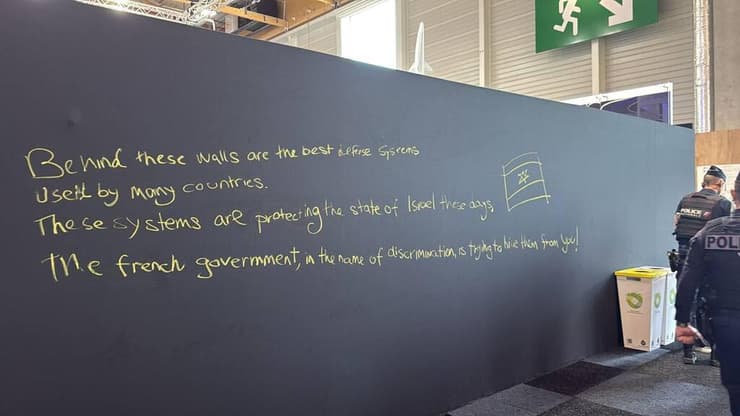 Behind these walls are the best defense systems
Used by many countries.
These systems are protecting the state of Israel these days
The french government, in the name of discrimination, is trying to hide them from you!
POLICE
POLI